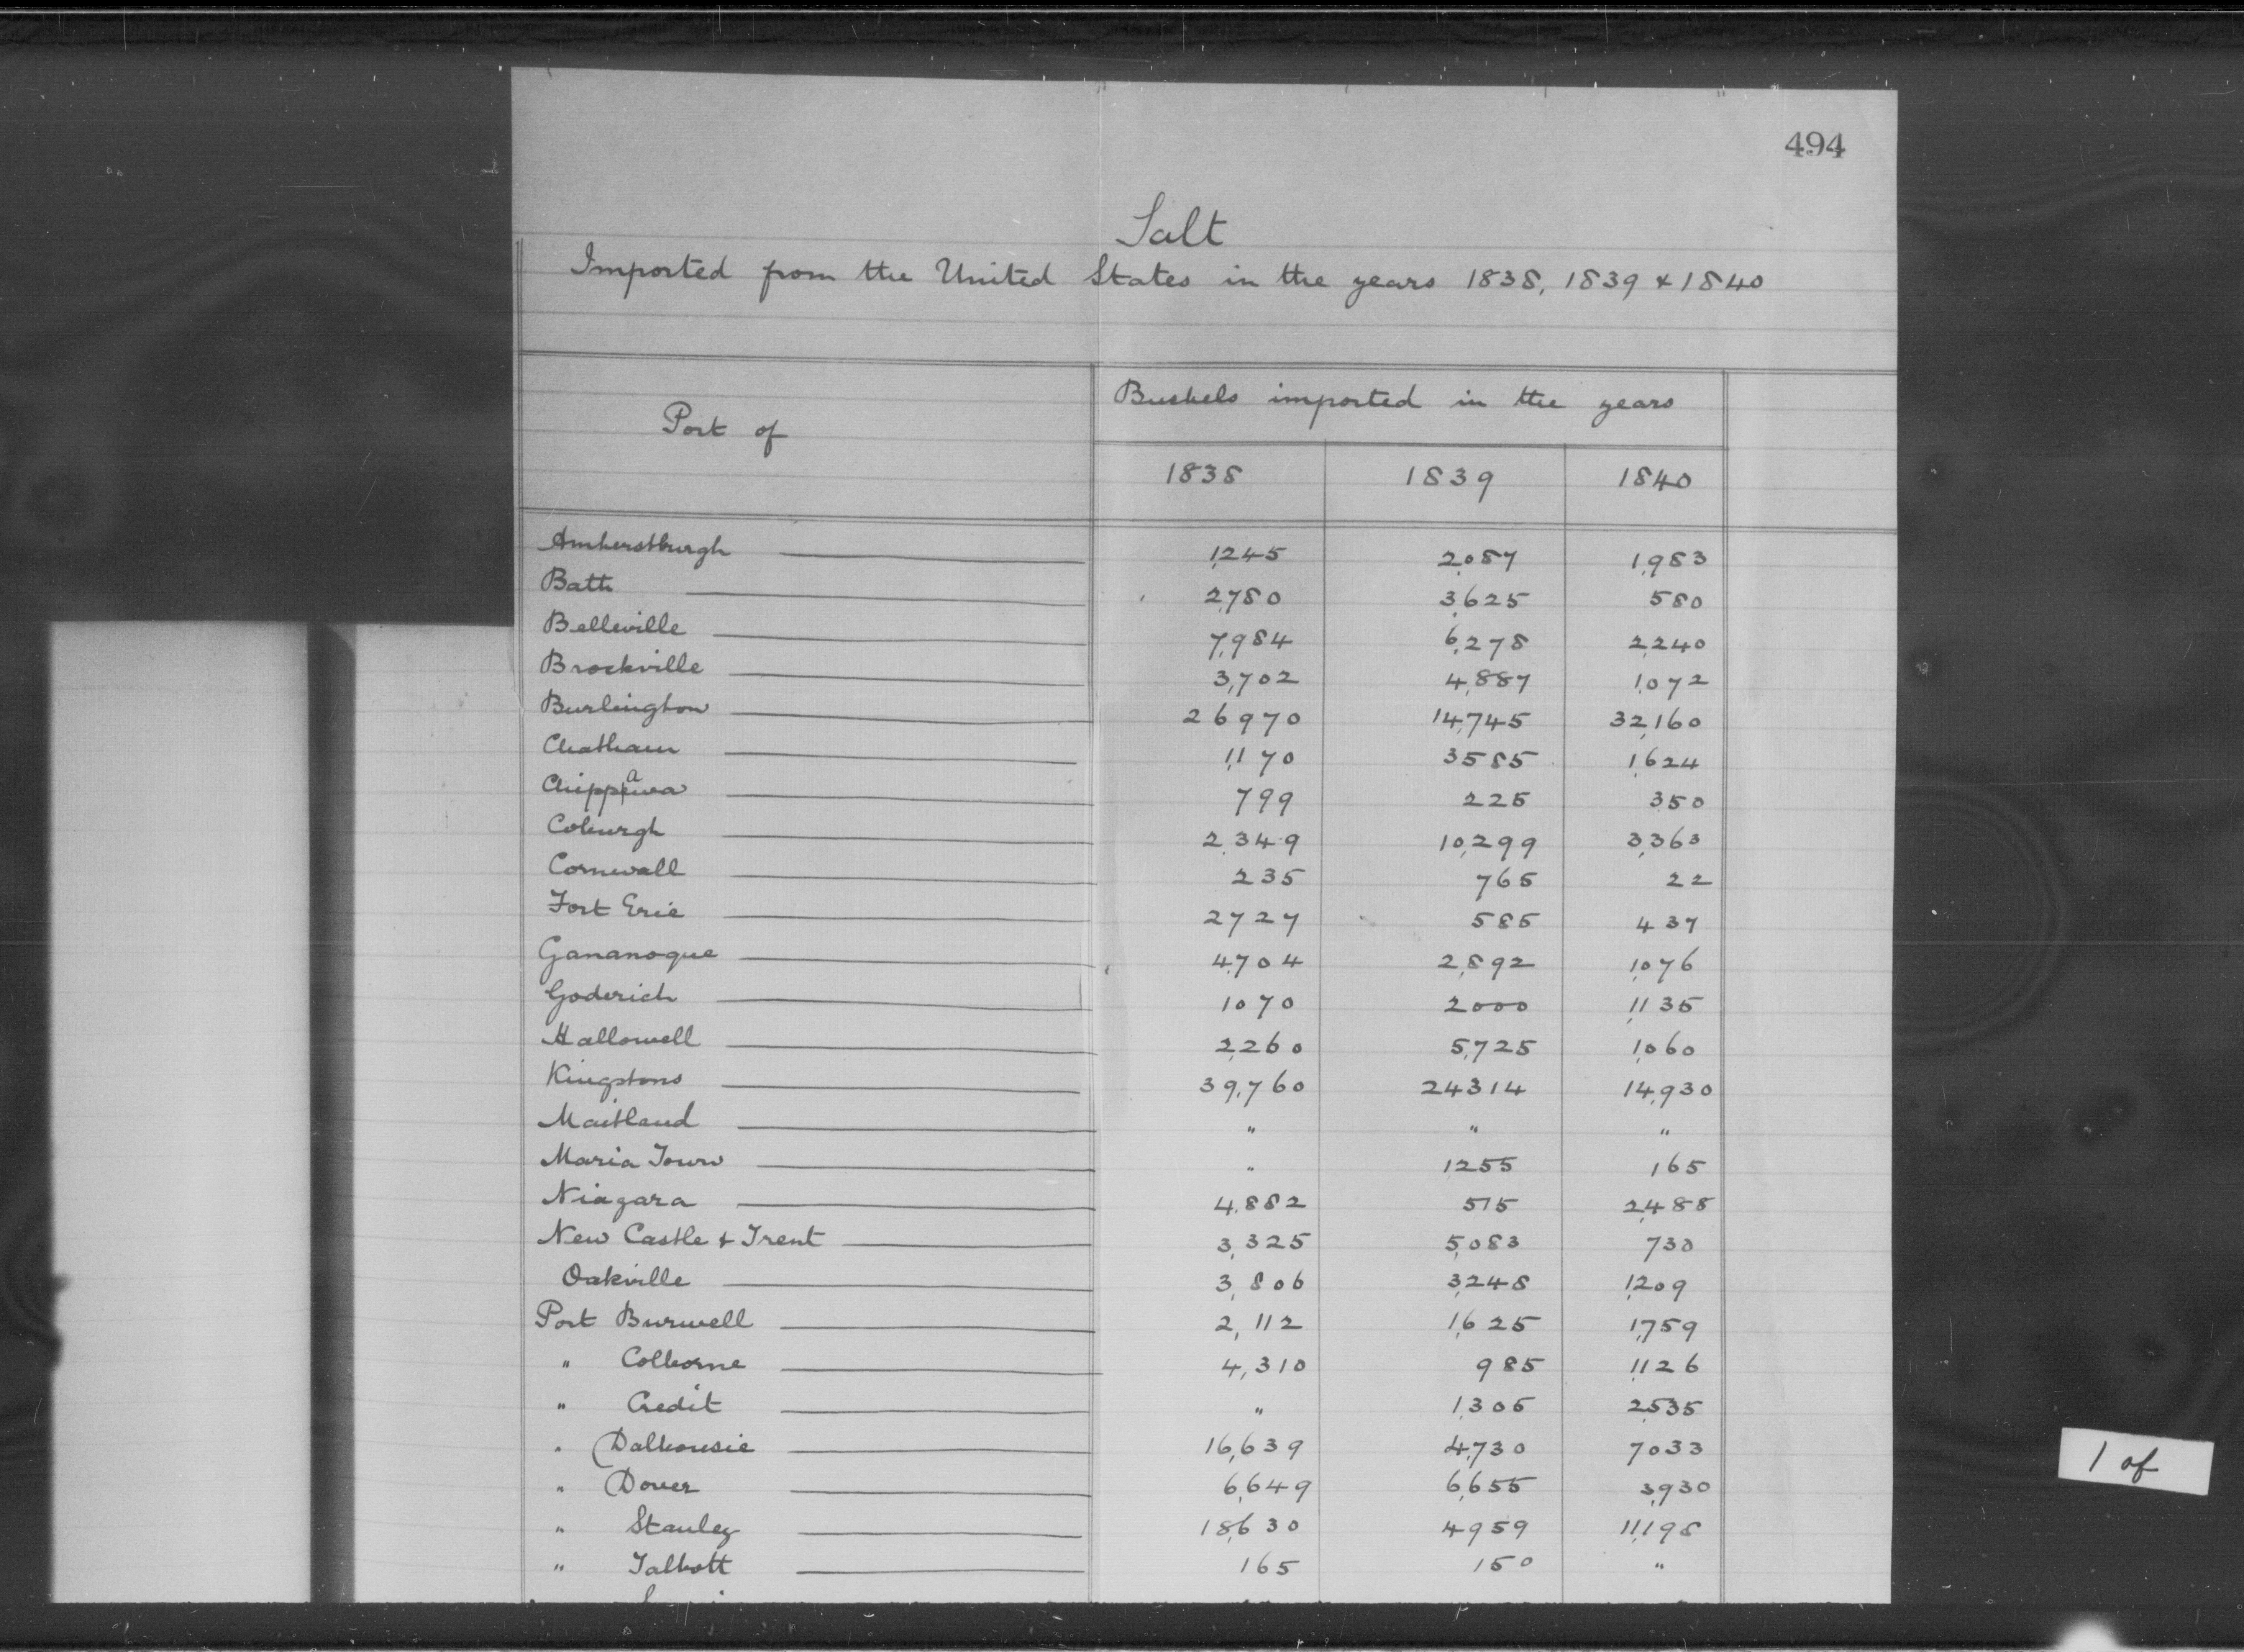 494
Salt
Imported from the United States in the years 1838, 1839 & 1840
Port of
Bushels imported in the years
1838 1839 1840
Amherstburgh 1,245 2,087 1,983
Bath 2,780 3,625 580
Belleville 7,984 6,278 2,240
Brockville 3,702 4,887 1,072
Burlington 26970 14,745 32,160
Chatham 1,170 3585 1,624
Chippawa 799 225 350
Coburgh 2,349 10,299 3,363
Cornwall 235 765 22
Fort Erie 2727 585 437
Gananoque 4,704 2,892 1,076
Goderich 1070 2000 1,135
Hallowell 2,260 5,725 1,060
Kingston 39,760 24314 14,930
Maitland " " "
Maria Town " 1255 165
Niagara 4,882 515 2,488
New Castle & Trent 3,325 5,083 730
Oakville 3,806 3,248 1,209
Port Burwell 2,112 1,625 1,759
" Colborne 4,310 985 1,126
" Credit " 1,305 2,535
" Dalhousie 16,639 4,730 7033
" Dover 6,649 6,655 3,930
" Stanley 18,630 4959 11,198
" Talbott 165 150 "
1 of